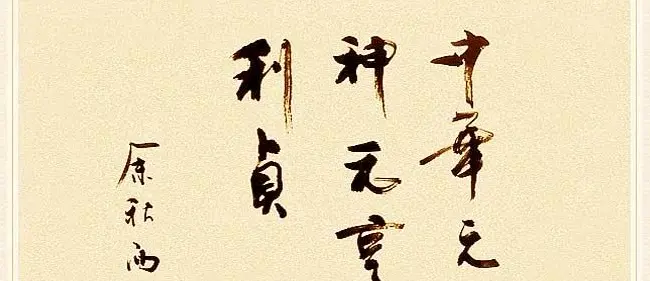 中華元
神元亨
利貞
秋雨